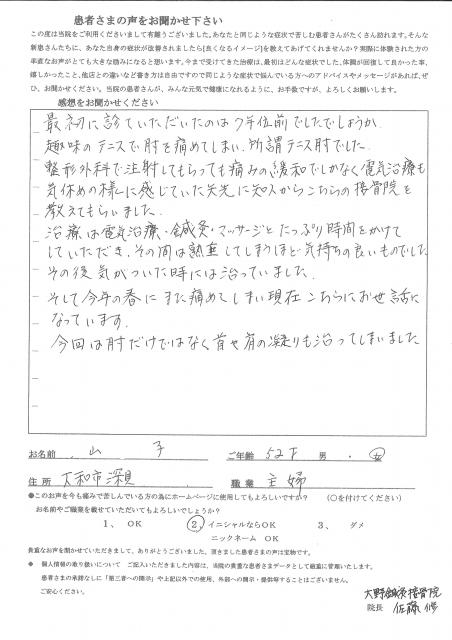 患者さまの声をお聞かせ下さい
この度は当院をご利用くださいまして有難うございます。あなたと同じような症状で苦しむ患者さんがたくさん訪れます。そんな
新患さんたちに、あなた自身の症状が改善されましたら[良くなるイメージ]を教えてあげてくれませんか？実際に体験された方の
率直なお声がとても大きな励みになると思います。今まで受けてきた治療は、最初はどんな症状でした、体調が回復して良かった事、
嬉しかったこと、他店との違いなど書き方は自由ですので同じような症状で悩んでいる方へのアドバイスやメッセージがあれば、ぜ
ひ、お聞かせください。当院の患者さんが、みんな元気で健康になれるように、お手数ですが、よろしくお願いします。
感想をお聞かせください
最初に診ていただいたのは7年位前でしたでしょうか
趣味のテニスで肘を痛めてしまい所謂テニス肘でした.
整形外科で注射してもらっても痛みの緩和でしかなく電気治療も
気休めの様に感じていた矢先に知人からこちらの接骨院を
教えてもらいました.
治療は電気治療・鍼灸・マッサージとたっぷり時間をかけて
していただき、その間は熟睡してしまうほど気持ちの良いものでした
その後気がついた時には治っていました.
そして今年の春にまた痛めてしまい現在こちらにお世話に
なっています.
今回は肘だけではなく首や肩の凝りも治ってしまいました
お名前 山 子 ご年齢 52才 男 ・ 女
住所 大和市深見 職業 主婦
●このお声を今も痛みで苦しんでいる方の為にホームページに使用してもよろしいですか？ （○を付けてください）
お名前やご職業を載せていただいてもよろしいでしょうか？
1、 OK 2、イニシャルならOK 3、 ダメ
ニックネーム OK
貴重なお声を聞かせていただきまして、ありがとうございました。頂きました患者さまの声は宝物です。
● 個人情報の取り扱いについて ご記入いただきました内容は、当院の貴重な患者さまデータとして厳重に管理いたします。
患者さまの承諾なしに「第三者への開示」や上記以外での使用、外部への開示・提供等することはございません。
ご安心ください。
大野鍼灸接骨院
院長 佐藤 修